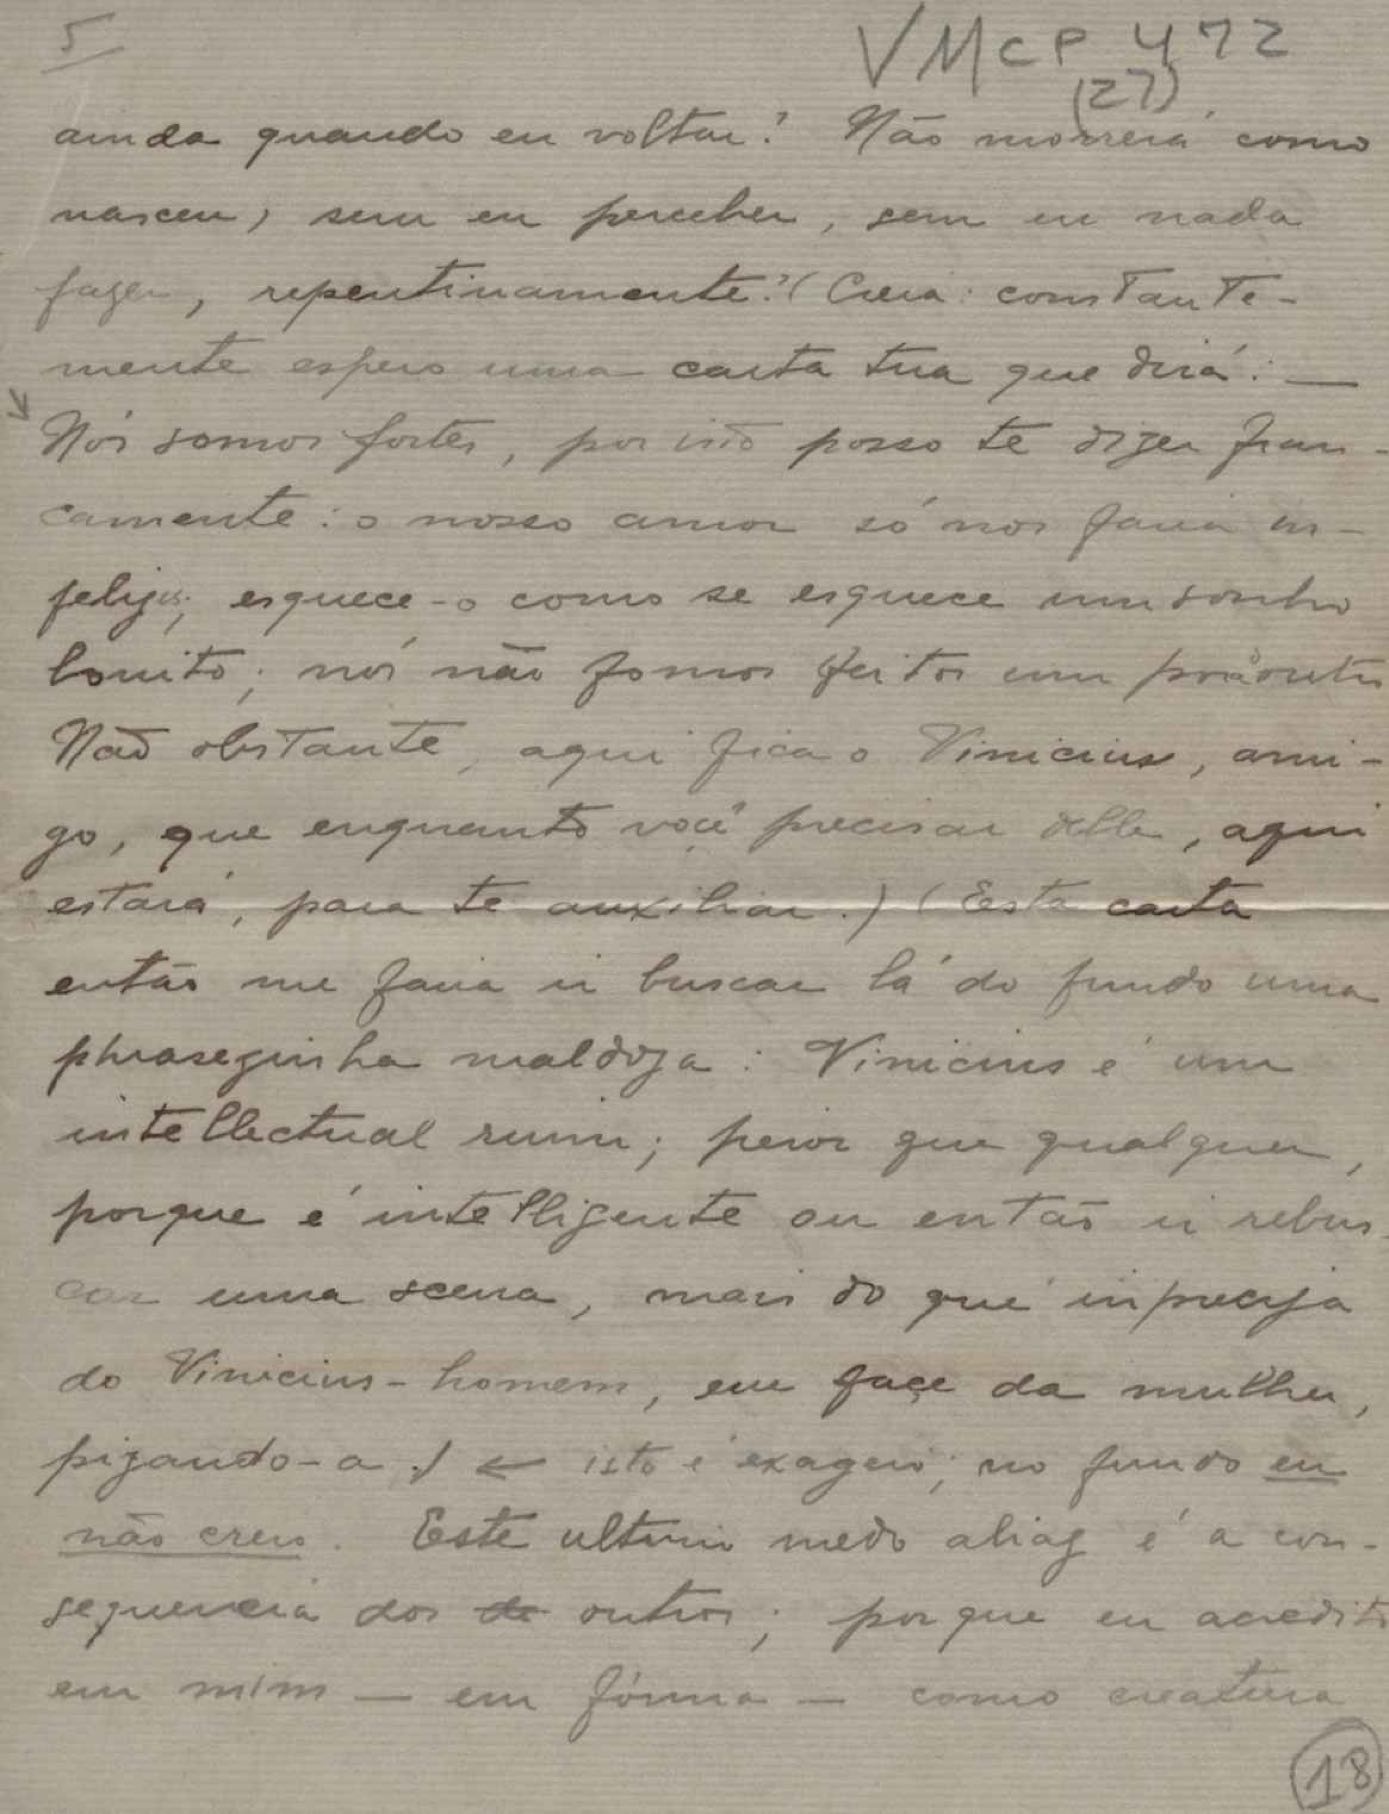 5
VMcP 472
(27)
ainda quando eu voltar? Não morrerá como
nasceu, sem eu perceber, sem eu nada
fazer, repentinamente? (Creia: constante-
mente espero uma carta tua que dirá: —
Nós somos fortes, por isto posso te dizer fran-
camente: o nosso amor só nos faria in-
felizes; esquece-o como se esquece um sonho
bonito; nós não fomos feitos um prá outro
Não obstante, aqui fica o Vinicius, ami-
go, que enquanto você precisar delle, aqui
estará, para te auxiliar.) (Esta carta
então me faria ir buscar lá do fundo uma
phrasezinha maldosa: Vinicius é um
intellectual ruim; peior que qualquer,
porque é intelligente ou então ir rebus-
car uma scena, mais do que imprecisa
do Vinicius-homem, em face da mulher,
pizando-a.) ← isto é exagero; no fundo eu
não creio. Este ultimo medo aliaz é a con-
sequencia dos de outros; porque eu acredito
em mim — em fórma — como creatura
18